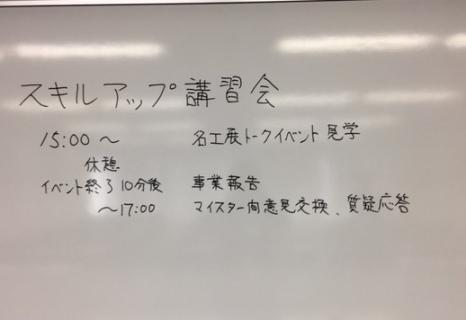 スキルアップ講習会
15:00 ～ 名工展トークイベント 見学
休憩
イベント終了10分後 事業報告
～17:00 マイスター間意見交換、質疑応答